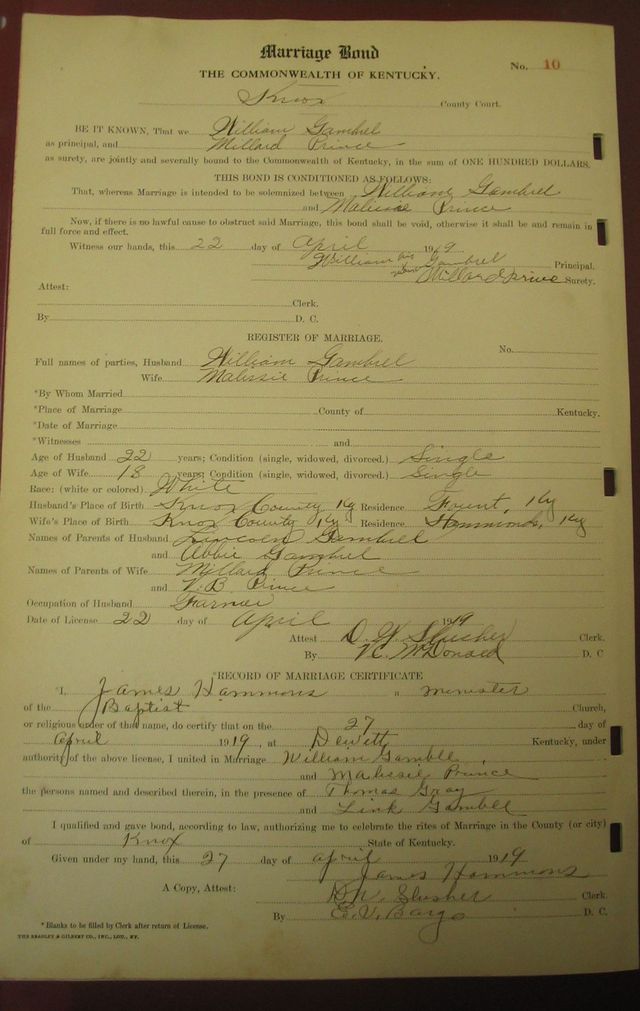 Marriage Bond
THE COMMONWEALTH OF KENTUCKY.
No. 10
Knox County Court.
BE IT KNOWN, That we William Gambrel
as principal, and Millard Prince
as surety, are jointly and severally bound to the Commonwealth of Kentucky, in the sum of ONE HUNDRED DOLLARS.
THIS BOND IS CONDITIONED AS FOLLOWS:
That, whereas Marriage is intended to be solemnized between William Gambrel
and Malissie Prince
Now, if there is no lawful cause to obstruct said Marriage, this bond shall be void, otherwise it shall be and remain in
full force and effect.
Witness our hands, this 22 day of April 1919
William his Gambrel Principal.
Millard Prince Surety.
Attest:
Clerk.
By D. C.
REGISTER OF MARRIAGE.
No.
Full names of parties, Husband William Gambrel
Wife Malissie Prince
*By Whom Married
*Place of Marriage County of Kentucky.
*Date of Marriage
*Witnesses and
Age of Husband 22 years; Condition (single, widowed, divorced.) Single
Age of Wife 18 years; Condition (single, widowed, divorced.) Single
Race: (white or colored) White
Husband's Place of Birth Knox County Ky Residence Fount, Ky
Wife's Place of Birth Knox County Ky Residence Hammonds, Ky
Names of Parents of Husband Lincoln Gambrel
and Abbie Gambrel
Names of Parents of Wife Millard Prince
and V. B. Prince
Occupation of Husband Farmer
Date of License 22 day of April 1919
Attest D. W. Slusher Clerk.
By V. C. McDonald D. C
*RECORD OF MARRIAGE CERTIFICATE
*I, James Hammons a minister
of the Baptist Church,
or religious order of that name, do certify that on the 27 day of
April 1919, at Dewitt Kentucky, under
authority of the above license, I united in Marriage William Gamble,
and Malissie Prince
the persons named and described therein, in the presence of Thomas Gray
and Link Gamble
I qualified and gave bond, according to law, authorizing me to celebrate the rites of Marriage in the County (or city)
of Knox State of Kentucky.
Given under my hand, this 27 day of April 1919
James Hammons
A Copy, Attest: D. W. Slusher Clerk.
By E. V. Bargo D. C.
*Blanks to be filled by Clerk after return of License.
THE BRADLEY & GILBERT CO., INC., LOU., KY.